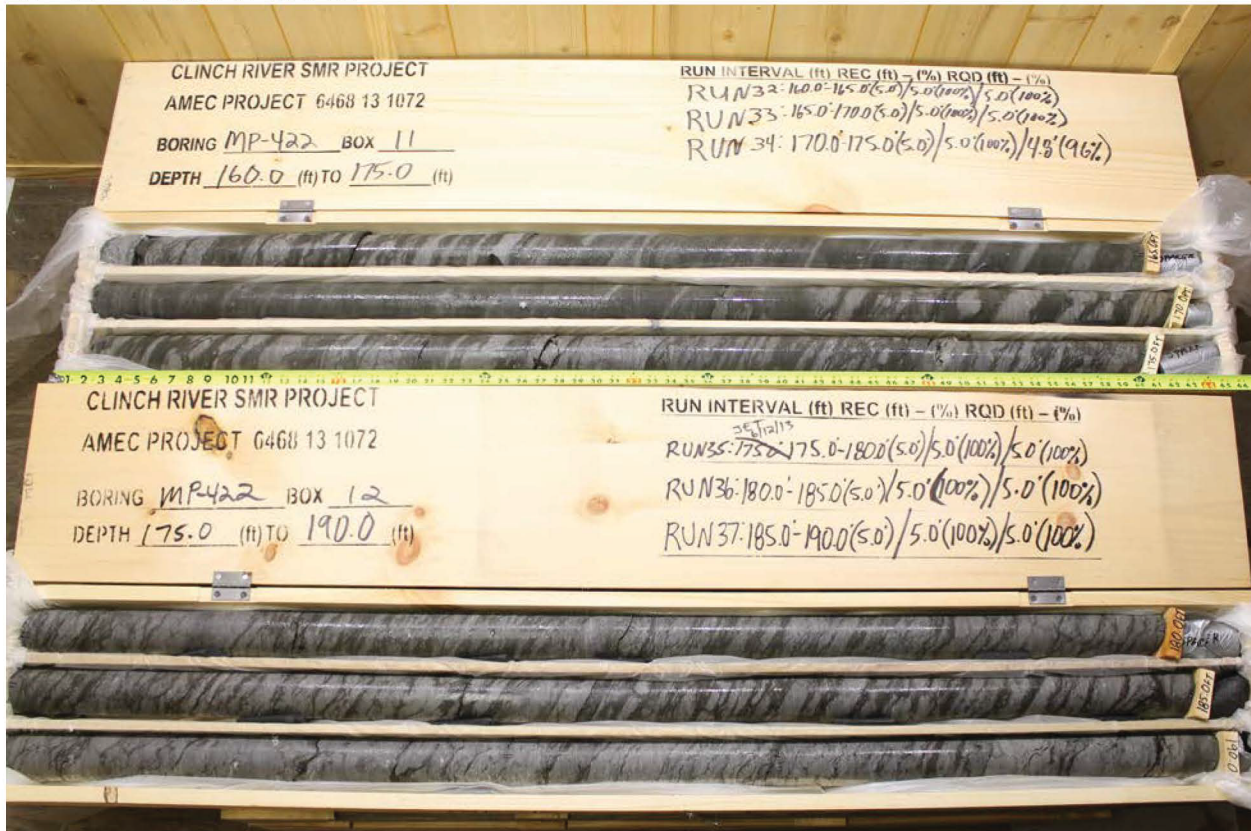 CLINCH RIVER SMR PROJECT
AMEC PROJECT 6468 13 1072
BORING MP-422 BOX 11
DEPTH 160.0 (ft) TO 175.0 (ft)
RUN INTERVAL (ft) REC (ft) – (%) RQD (ft) – (%)
RUN 32: 160.0'-165.0'(5.0)/5.0'(100%)/5.0'(100%)
RUN 33: 165.0'-170.0'(5.0)/5.0'(100%)/5.0'(100%)
RUN 34: 170.0'-175.0'(5.0)/5.0'(100%)/4.8'(96%)
165.0FT
170.0FT
175.0FT
SPACER
CLINCH RIVER SMR PROJECT
AMEC PROJECT 6468 13 1072
BORING MP-422 BOX 12
DEPTH 175.0 (ft) TO 190.0 (ft)
RUN INTERVAL (ft) REC (ft) – (%) RQD (ft) – (%)
6/12/13
RUN35: 175.0' 175.0'-180.0'(5.0')/5.0'(100%)/5.0'(100%)
RUN36: 180.0'-185.0'(5.0')/5.0'(100%)/5.0'(100%)
RUN37: 185.0'-190.0'(5.0')/5.0'(100%)/5.0'(100%)
180.0FT
SPACER
185.0FT
190.0